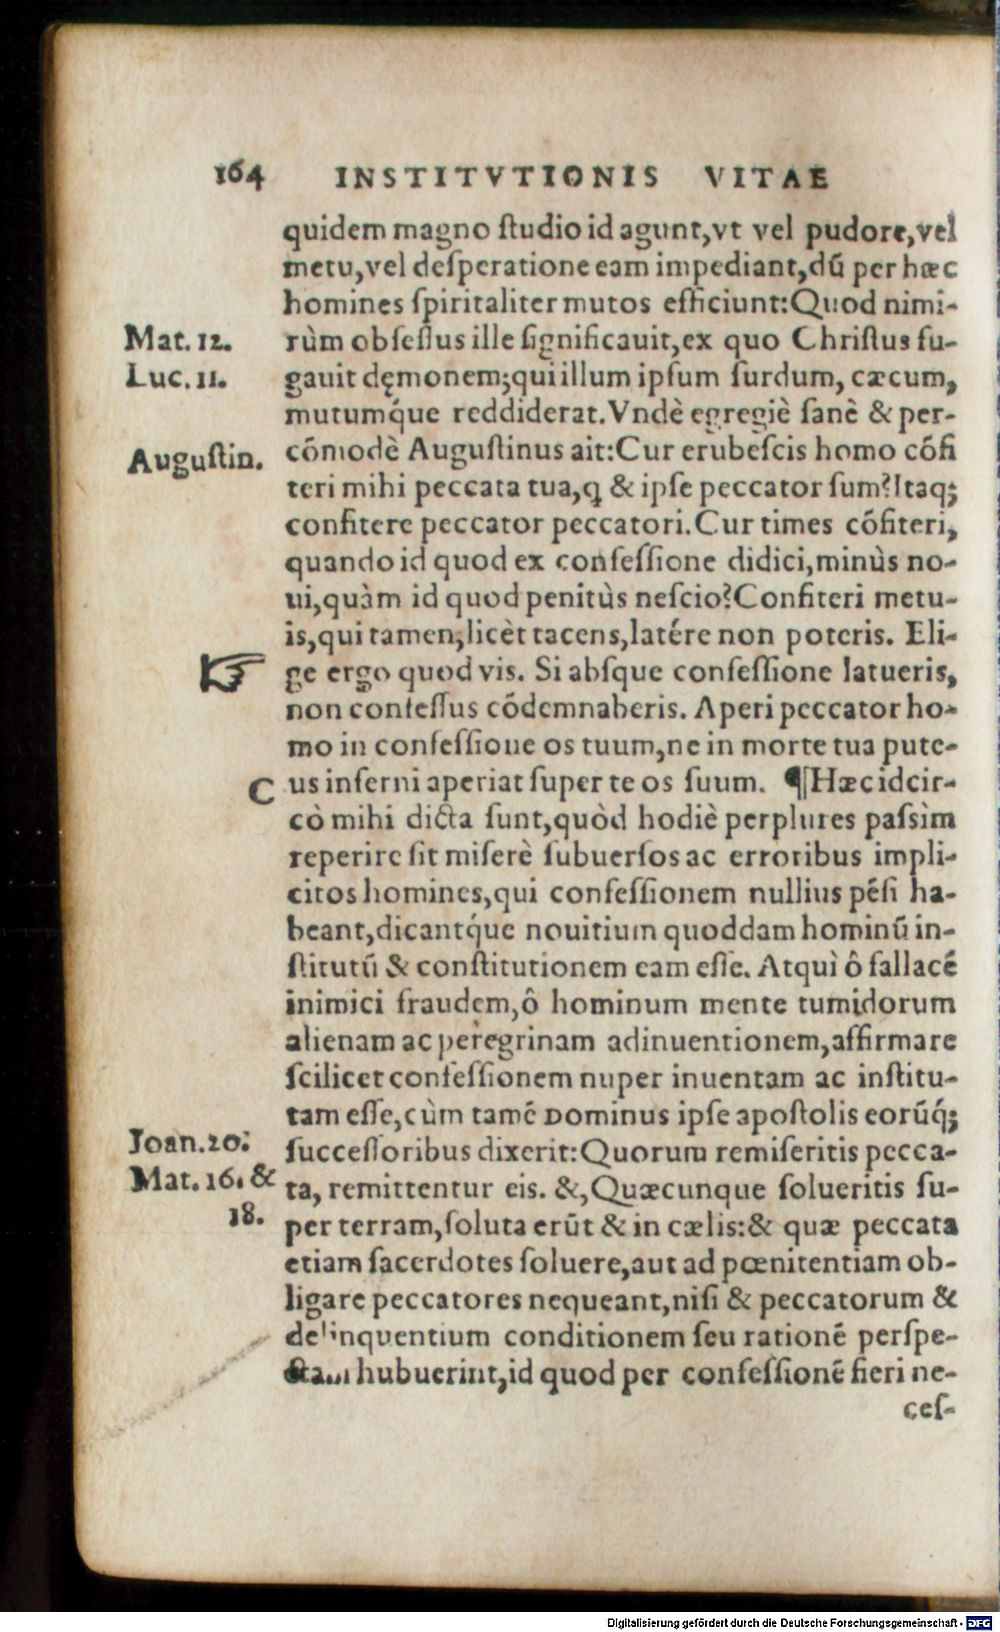 164 INSTITVTIONIS VITAE
quidem magno ſtudio id agunt,vt vel pudore,vel
metu,vel deſperatione eam impediant,dū per hæc
homines ſpiritaliter mutos efficiunt:Quod nimi-
Mat. 12. rùm obſeſſus ille ſignificauit,ex quo Chriſtus fu-
Luc. 11. gauit dęmonem;qui illum ipſum ſurdum, cæcum,
mutumq́ue reddiderat. Vndè egregiè ſanè & per-
Auguſtin. cōmodè Auguſtinus ait:Cur erubeſcis homo cōfi
teri mihi peccata tua,q & ipſe peccator ſum?Itaq;
confitere peccator peccatori. Cur times cōfiteri,
quando id quod ex confeſſione didici,minùs no-
ui,quàm id quod penitùs neſcio?Confiteri metu-
is,qui tamen,licèt tacens,latére non poteris. Eli-
☞ ge ergo quod vis. Si abſque confeſſione latueris,
non confeſſus cōdemnaberis. Aperi peccator ho-
mo in confeſſione os tuum,ne in morte tua pute-
C us inferni aperiat ſuper te os ſuum. ¶Hæc idcir-
cò mihi dicta ſunt,quòd hodiè perplures paſsìm
reperire ſit miſerè ſubuerſos ac erroribus impli-
citos homines,qui confeſſionem nullius pēſi ha-
beant,dicantq́ue nouitium quoddam hominū in-
ſtitutū & conſtitutionem eam eſſe. Atquì ô fallacē
inimici fraudem,ô hominum mente tumidorum
alienam ac peregrinam adinuentionem,affirmare
ſcilicet confeſſionem nuper inuentam ac inſtitu-
tam eſſe,cùm tamē Dominus ipſe apoſtolis eorūq́;
Joan. 20. ſucceſſoribus dixerit:Quorum remiſeritis pecca-
Mat. 16. & ta, remittentur eis. &,Quæcunque ſolueritis ſu-
18. per terram,ſoluta erūt & in cælis:& quæ peccata
etiam ſacerdotes ſoluere,aut ad pœnitentiam ob-
ligare peccatores nequeant,niſi & peccatorum &
delinquentium conditionem ſeu rationē perſpe-
ctam hubuerint,id quod per confeſſionē fieri ne-
ceſ-
Digitalisierung gefördert durch die Deutsche Forschungsgemeinschaft - DFG